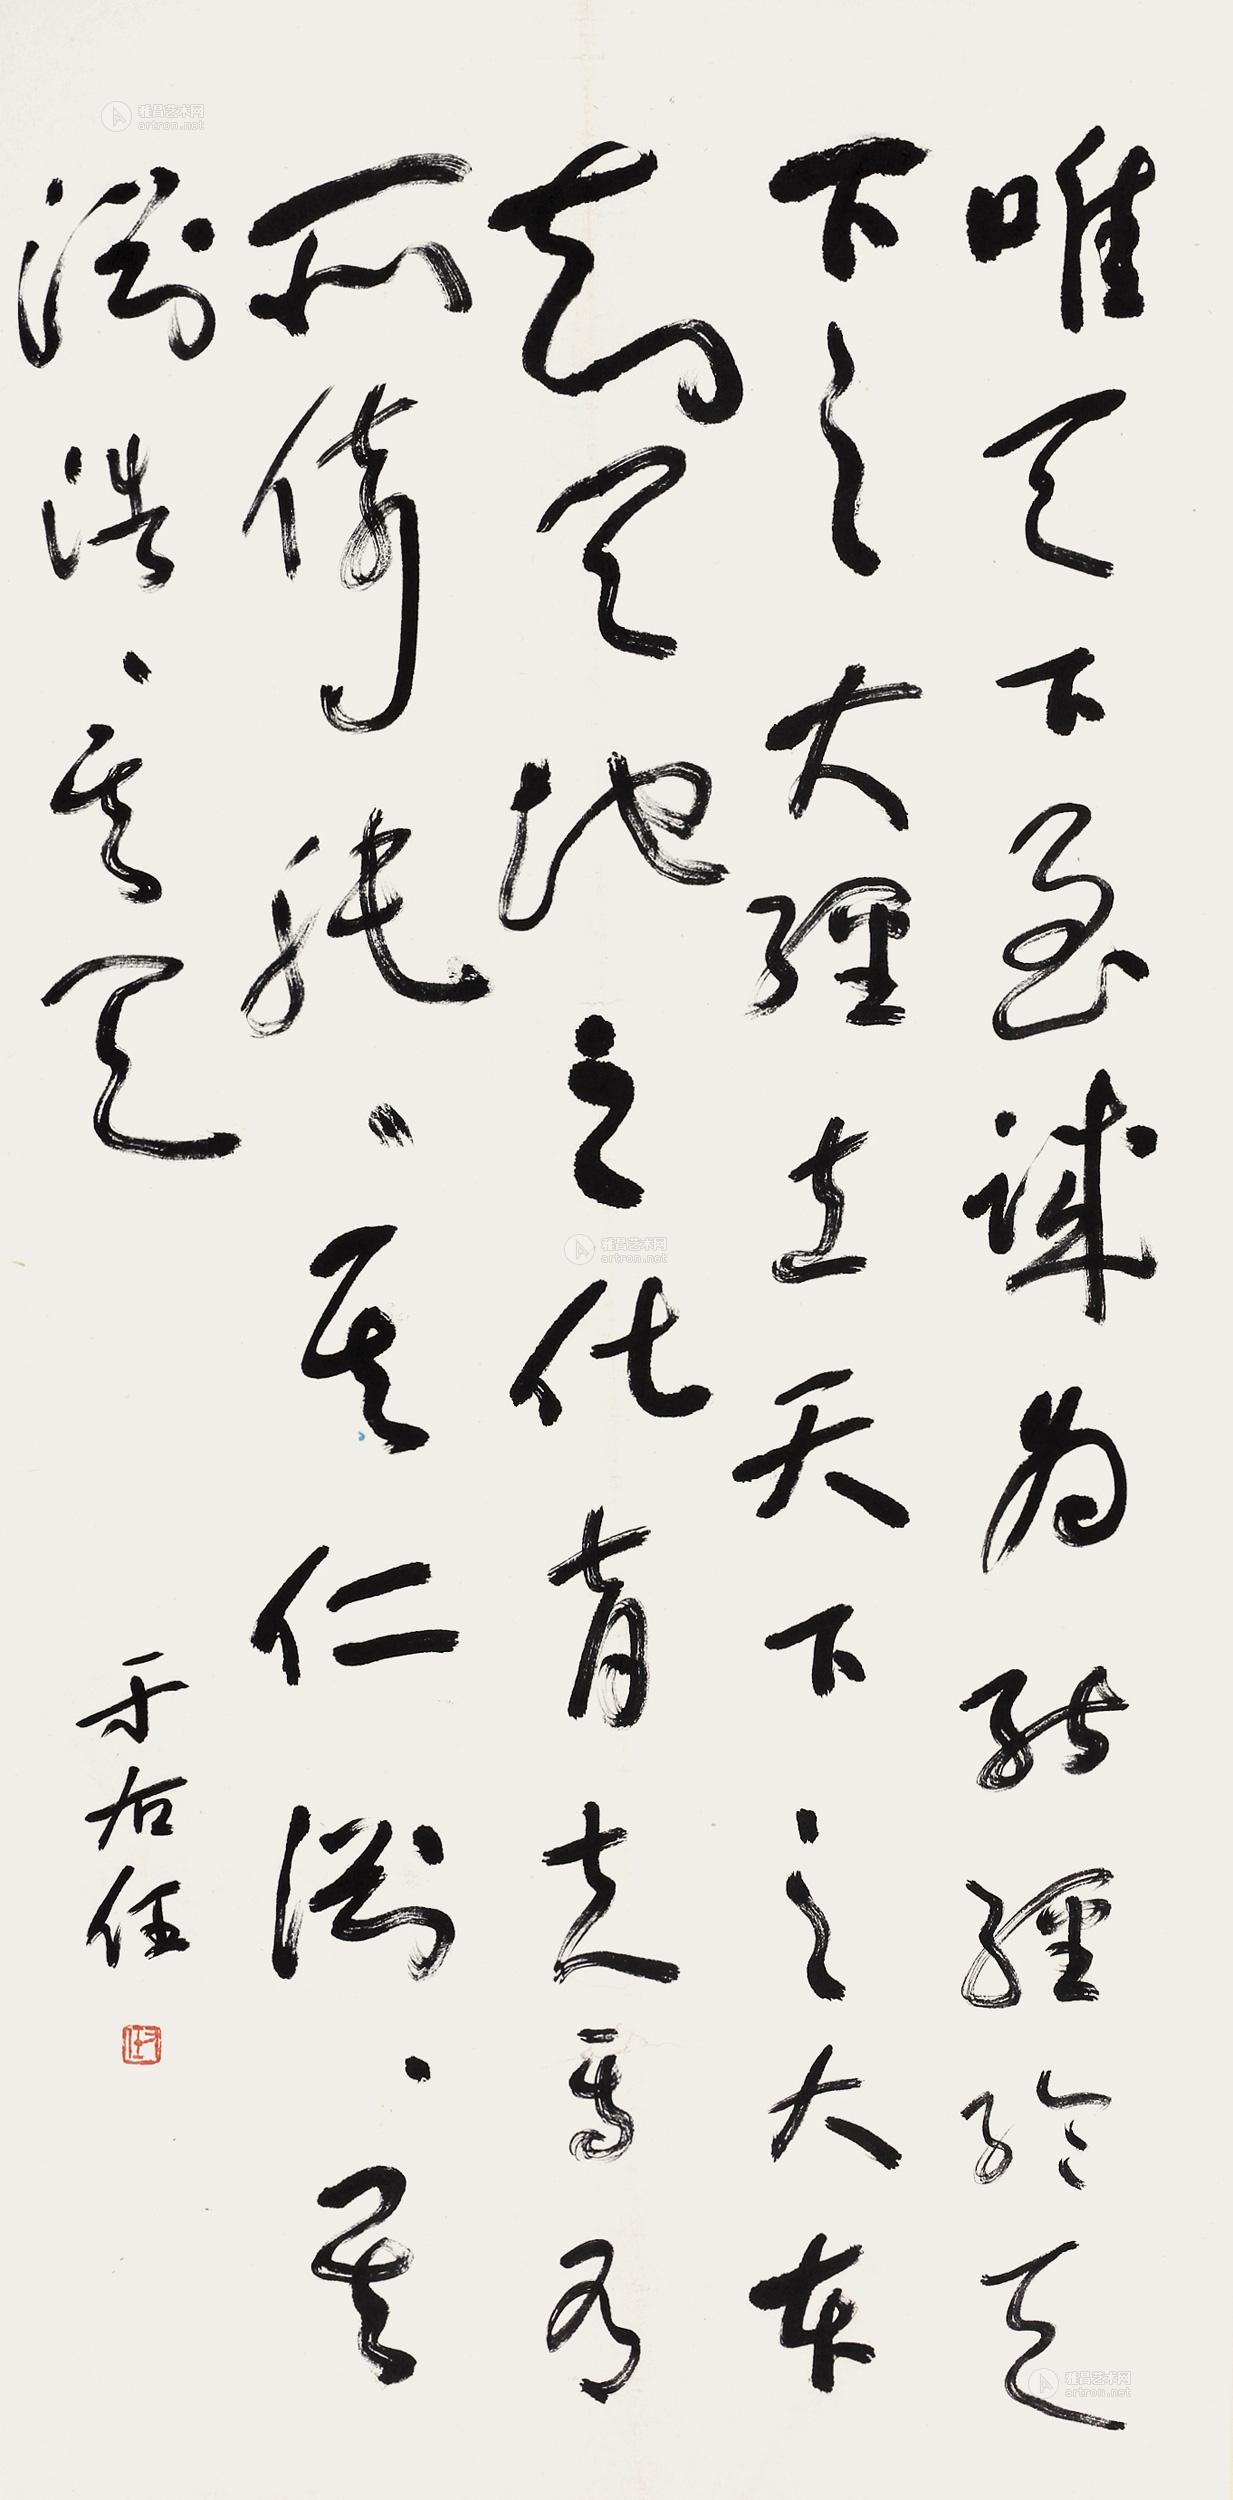 唯天下至誠為能經綸天
下之大經立天下之大本
知天地之化育夫焉有
所倚肫〻其仁淵〻其
淵浩〻其天
于右任
右任
雅昌艺术网
artron.net
雅昌艺术网
artron.net
雅昌艺术网
artron.net